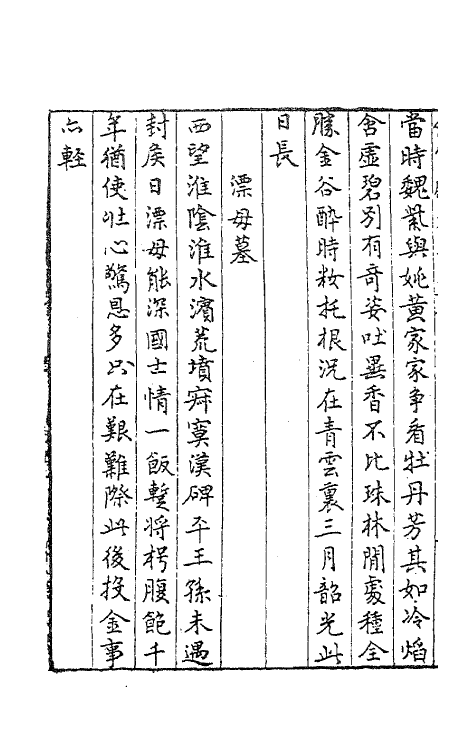 當時魏紫與姚黄家家争看牡丹芳其如冷焰
含虚碧别有奇姿吐異香不比珠林閒處種全
勝金谷醉時粧托根況在青雲裏三月韶光此
日長
漂母墓
西望淮陰淮水濱荒墳寂寞漢碑平王孫未遇
封矦日漂母能深國士情一飯暫將枵腹飽千
年猶使壯心驚恩多只在艱難際此後投金事
亦輕